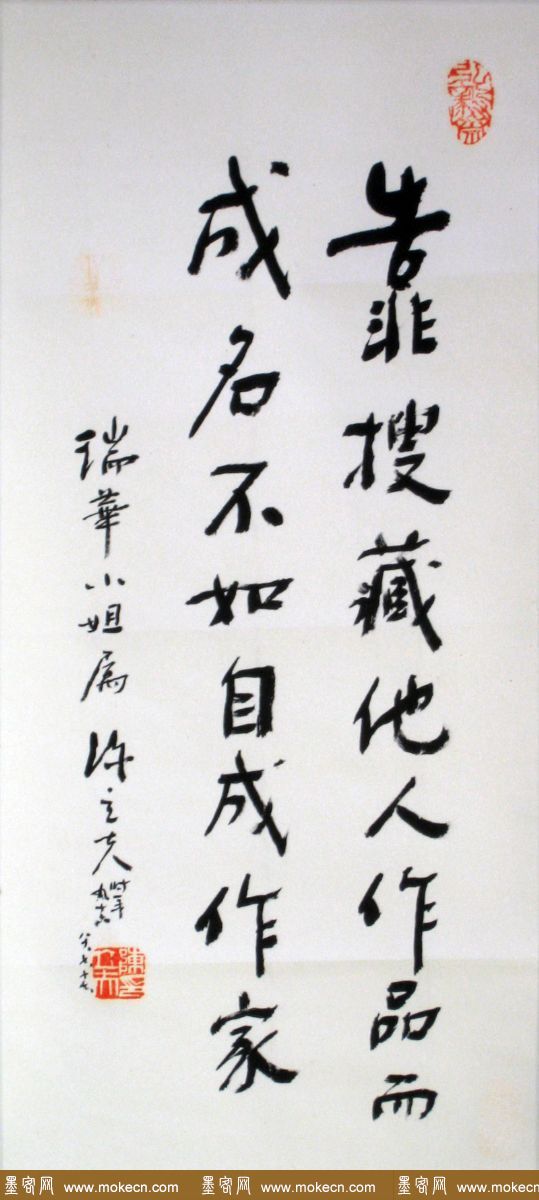 靠搜藏他人作品而
成名不如自成作家
瑞華小姐屬 陳立夫
時年九十六
墨客网 www.mokecn.com 墨客网 www.mokecn.com 墨客网 www.mokecn.com